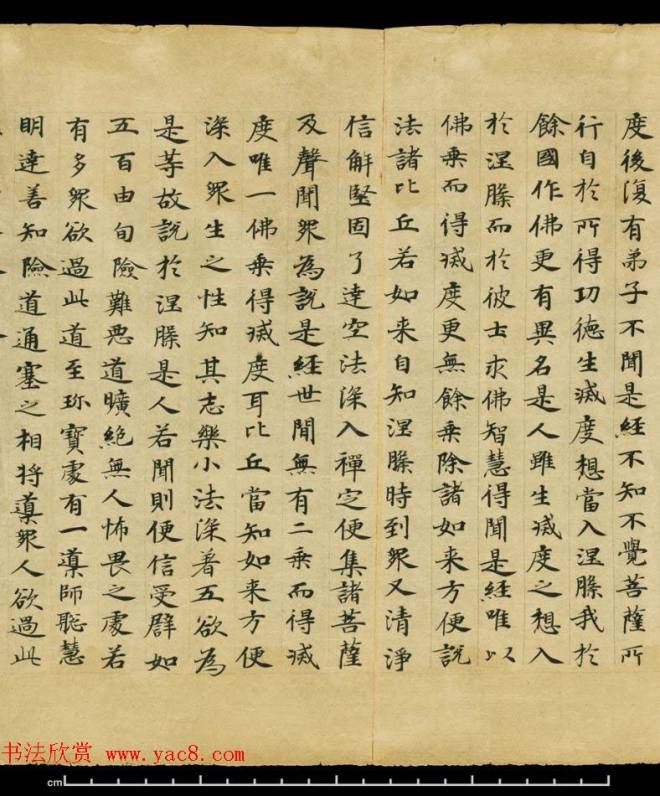 度後復有弟子不聞是經不知不覺菩薩所
行自於所得功德生滅度想當入涅槃我於
餘國作佛更有異名是人雖生滅度之想入
於涅槃而於彼土求佛智慧得聞是經唯以
佛乘而得滅度更無餘乘除諸如来方便說
法諸比丘若如来自知涅槃時到眾又清淨
信解堅固了達空法深入禪定便集諸菩薩
及聲聞眾為說是經世間無有二乘而得滅
度唯一佛乘得滅度耳比丘當知如来方便
深入眾生之性知其志樂小法深著五欲為
是等故說於涅槃是人若聞則便信受譬如
五百由旬險難惡道曠絕無人怖畏之處若
有多眾欲過此道至珎寶處有一導師聰慧
明達善知險道通塞之相將導眾人欲過此
书法欣赏 www.yac8.com
cm